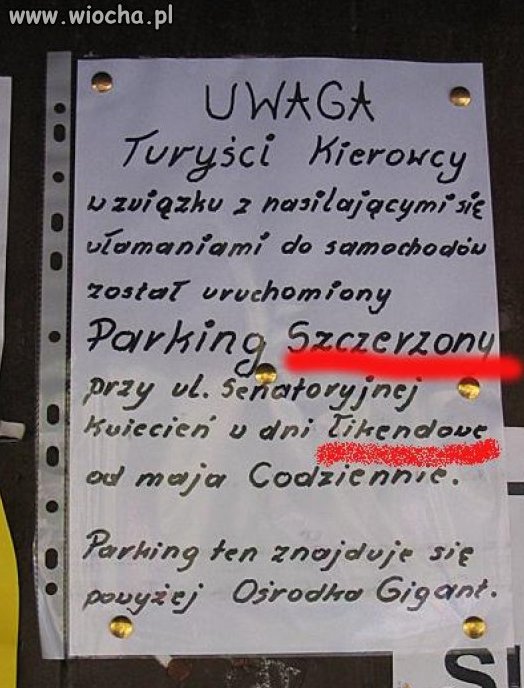 www.wiocha.pl
UWAGA
Turyści Kierowcy
w związku z nasilającymi się
włamaniami do samochodów
został uruchomiony
Parking Szczerzony
przy ul. Senatoryjnej
Kwiecień w dni Łikendowe
od maja Codziennie.
Parking ten znajduje się
powyżej Ośrodka Gigant.